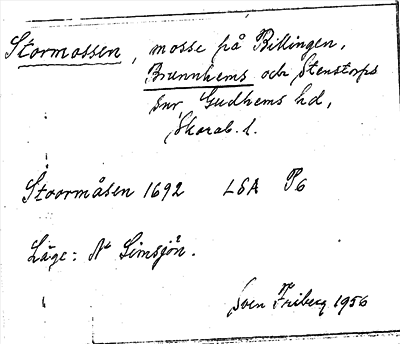 Stormossen, mosse på Billingen,
Brunnhems och Stenstorps
snr Gudhems hd,
Skarab. l.
Stoormåsen 1692 LSA P6
Läge: N Simsjön.
Sven Friberg 1956